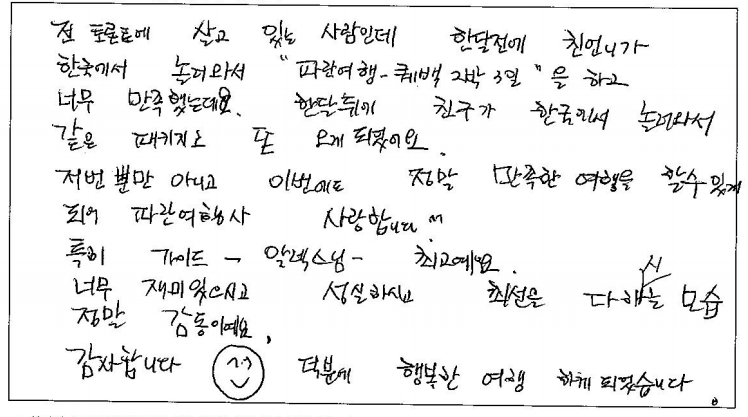 전 토론토에 살고 있는 사람인데 한달전에 친언니가
한국에서 놀러와서 "파란여행-퀘백 2박 3일"을 하고
너무 만족했는데요. 한달뒤에 친구가 한국에서 놀러와서
같은 패키지로 또 오게 되었어요.
저번 뿐만 아니고 이번에도 정말 만족한 여행을 할수있게
되어 파란여행사 사랑합니다 ~
특히 가이드 - 알렉스님 - 최고예요.
너무 재미있으시고 성실하시고 최선을 다해시는 모습
정말 감동이예요.
감사합니다 덕분에 행복한 여행 하게 되었습니다